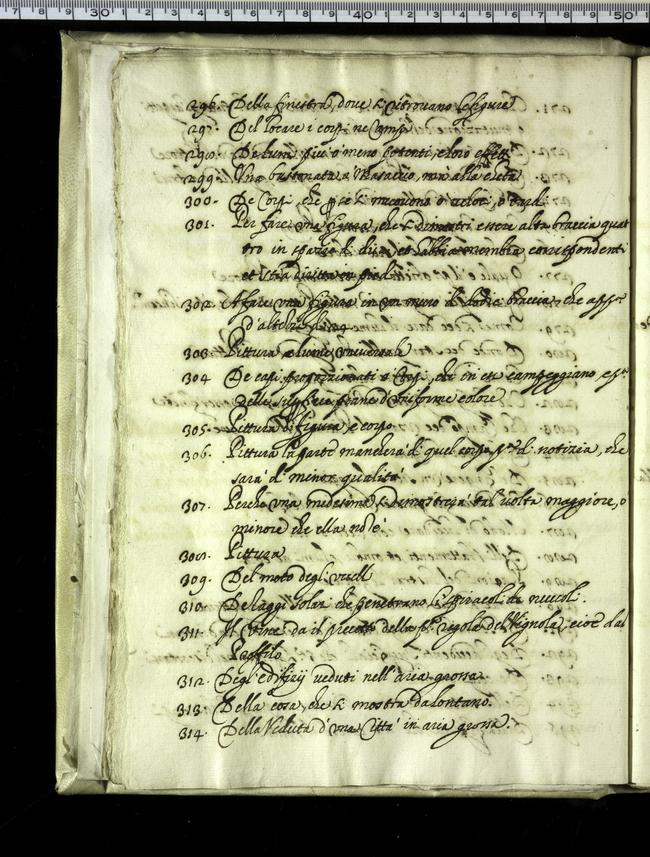 296. Della finestra, dove si ritrovano le figure
297. Del locare i corpi ne campi
298. De lumi piu o meno potenti, e loro effetti
299. Una bastonata a
300. De Corpi, che p se si muovono o veloci, o tardi
301. Per fare una figura, che si dimostri essere alta braccia quat
tro in spazio di dua, et habbia membra correspondenti
et stia diritta in piedi
302. A fare una figura in un muro di dodici braccia, che app.
d'altezza
303. Pittura e lume universale
304 De casi proporzionati a Corpi, che in essi campeggiano e p.
delle superfice piane d'uniforme colore
305. Pittura di figura e corpo
306. Pittura la parte mancherà di quel corpo p.ª di notizia, che
sarà di minor qualità
307. Perche una medesima si dimostrerà tal'uolta maggiore, o
minore che ella nō è
308. Pittura
309. Del moto degl'uccelli
310. De raggi Solari che penetrano li spiracoli de nuvoli.
311. Il da il precetto della pª regola del Vignola, cioè dal
Profilo
312. Degl'edifizij ueduti nell'aria grossa
313. Della cosa, che si mostra da lontano.
314. Della Veduta d'una Città in aria grossa.